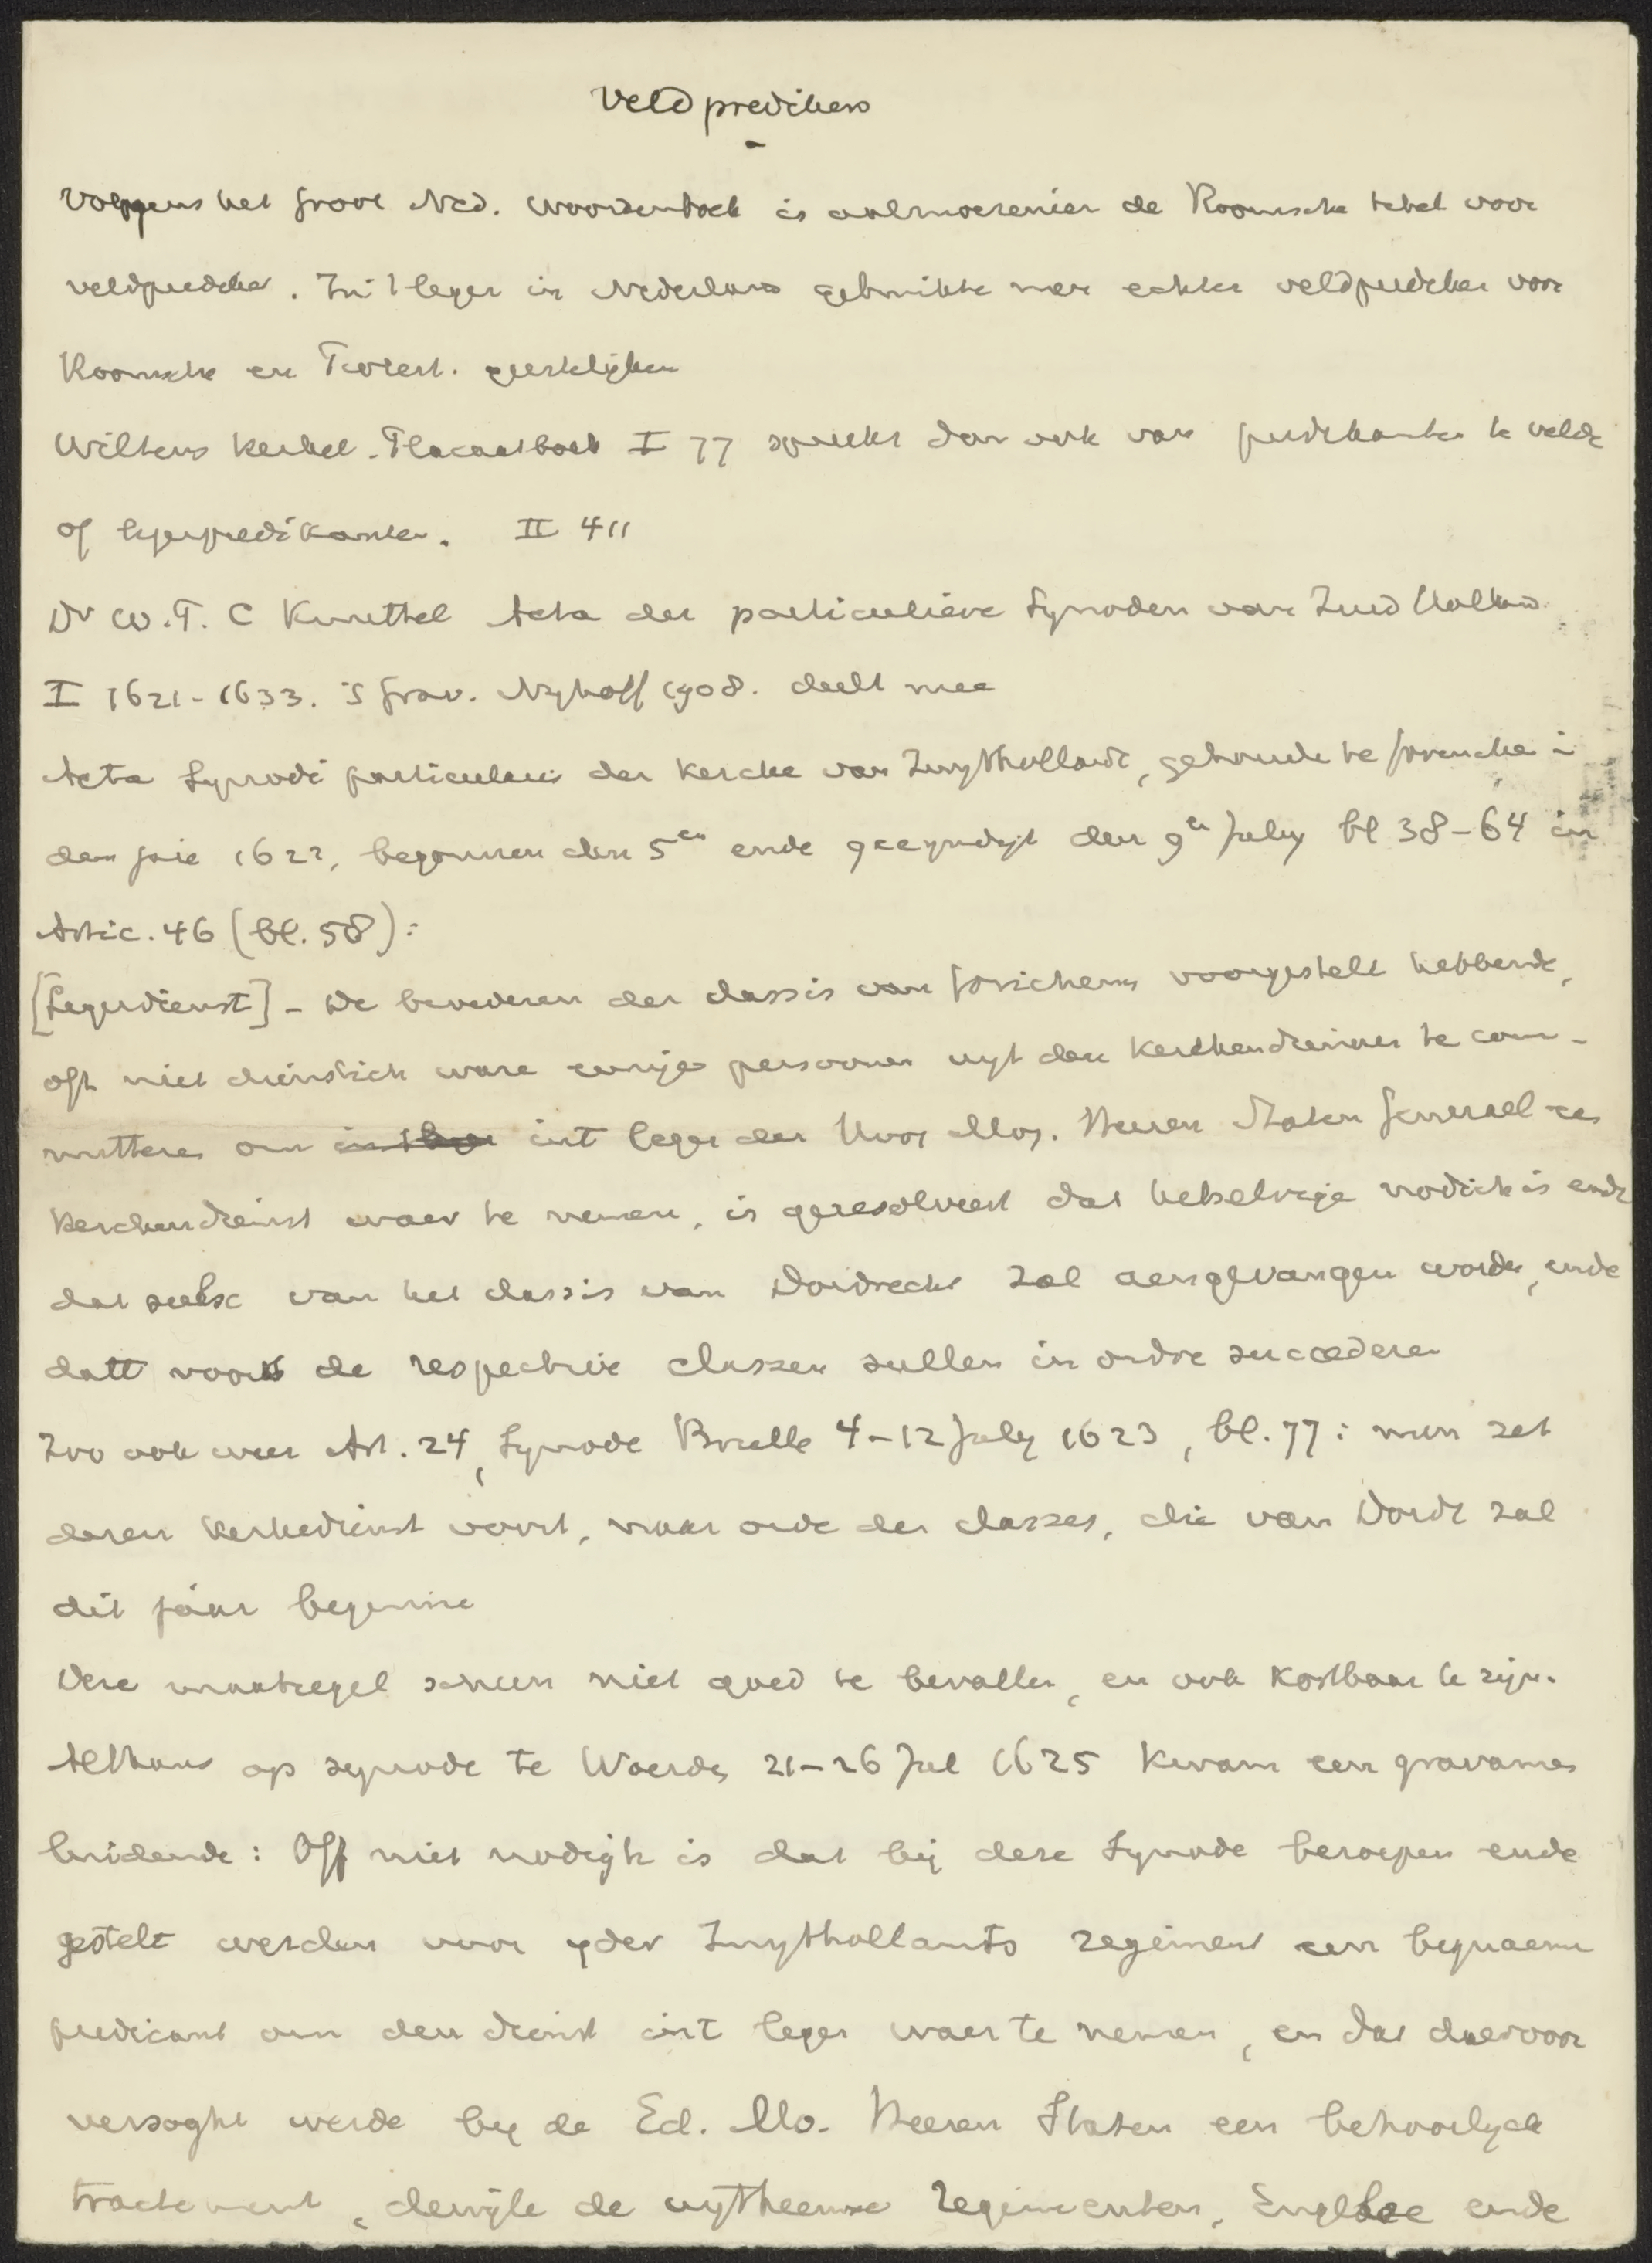 Veldpredikers
Volgens het Groot Ned. Woordenboek is aalmoezenier de Roomsche titel voor
veldprediker. In 't leger in Nederland gebruikte men echter veldprediker voor
Roomsche en Protest. geestelijken
Wiltens Kerkel. Placaatboek I 77 spreekt dan ook van predikanten te velde
of legerpredikanten. II 411
Dr W.P.C Knuttel Acta der particuliere Synoden van Zuid Holland
I 1621-1633. 's Grav. Nyhoff 1908. deelt mee
Acta Synodi particularis der Kercke van Zuythollandt, gehouden te Gorinchem in
den jare 1622, begonnen den 5en ende geeyndigt den 9en July bl 38-64 in
Artic. 46 (bl. 58):
[Legerdienst] - De broederen der classis van Gorichem voorgestelt hebbende,
oft niet dienstich ware eenige persoonen uyt den Kerckendienaren te com-
mitteren om int leger der Hoog Mog. Heeren Staten Generael den
Kerckendienst waer te nemen, is geresolveert dat hetselvige nodich is ende
dat sulx van het classis van Dordrecht zal aengevangen worden, ende
datt voorts de respective classen sullen in ordre succederen
Zoo ook weer Art. 24, Synode Brielle 4-12 July 1623, bl. 77: men zet
dezen Kerkedienst voort, naar orde der classes, die van Dordt zal
dit jaar beginne
Deze maatregel scheen niet goed te bevallen, en ook kostbaar te zijn.
Althans op synode te Woerden 21-26 Jul 1625 kwam een gravamen
luidende: Off niet nodigh is dat bij deze Synode beroepen ende
gestelt werden voor yder Zuythollants regiment een bequaem
predicant om den dienst int leger waer te nemen, en dat daervoor
versoght werde by de Ed. Mo. Heeren Staten een behoorlyck
tractement, dewijle de uytheemse regimenten, Englsse ende